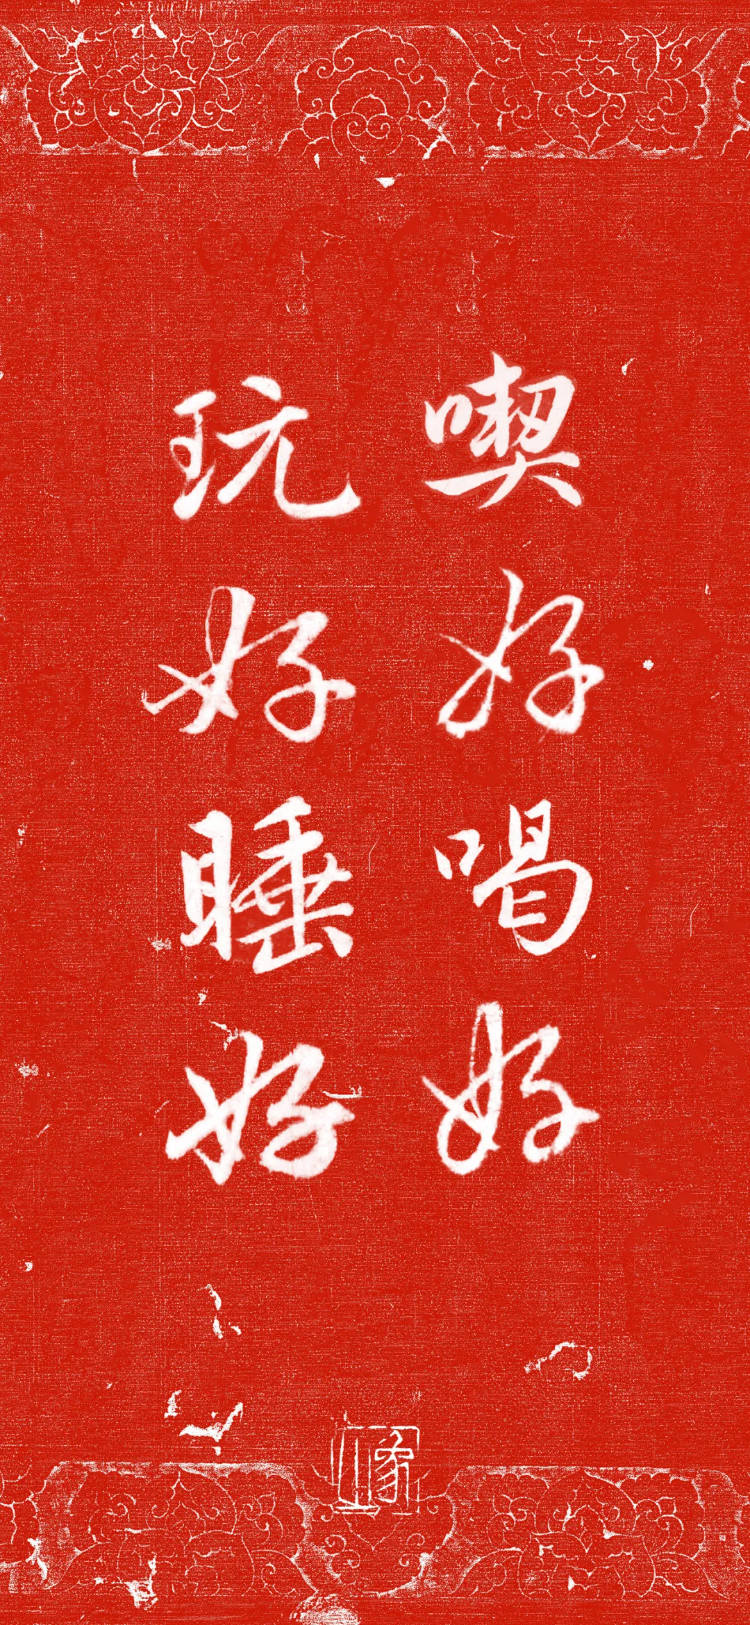 喫好喝好
玩好睡好